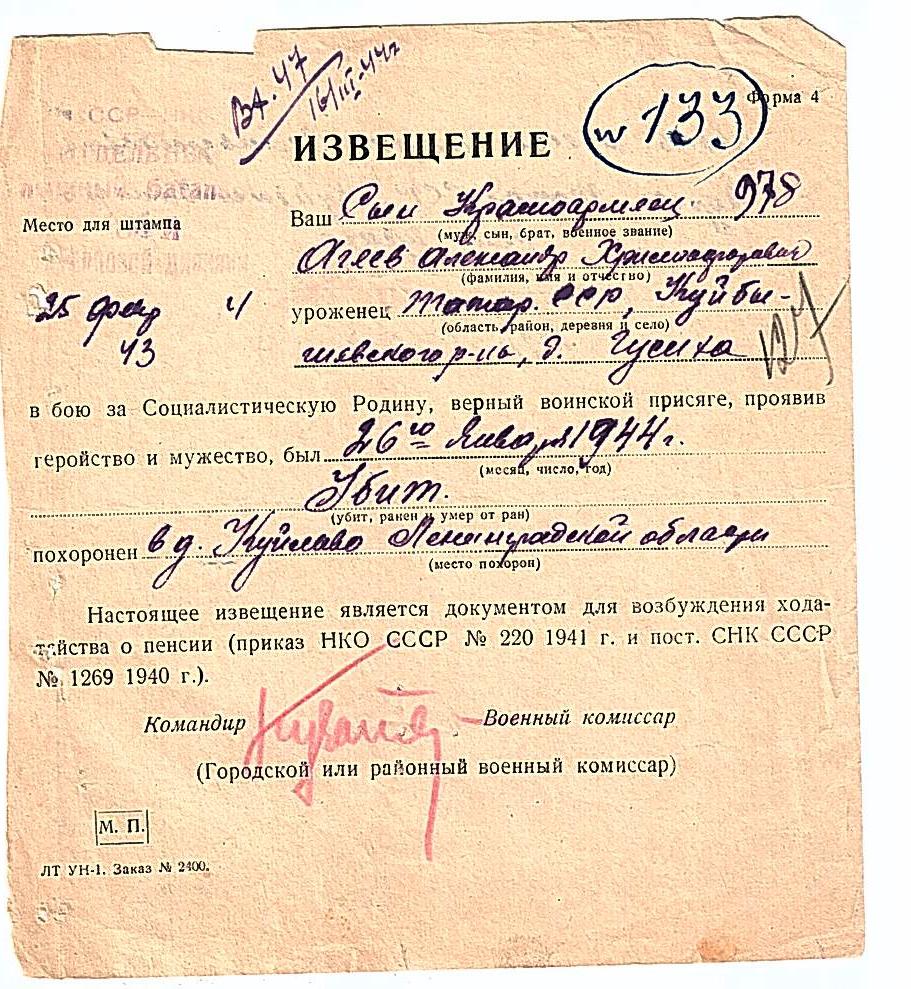 Вх. 47
16/III-44г
Форма 4
№ 133
ИЗВЕЩЕНИЕ
Место для штампа
Ваш Сын Красноармеец 978
(муж, сын, брат, военное звание)
Агеев Александр Христофорович
(фамилия, имя и отчество)
25 фев 4
43
уроженец Татар. ССР, Куйбы-
(область, район, деревня и село)
шевского р-на, д. Гусиха
127
в бою за Социалистическую Родину, верный воинской присяге, проявив
геройство и мужество, был 26го Января 1944 г.
(месяц, число, год)
Убит.
(убит, ранен и умер от ран)
похоронен в д. Ленинградской области
(место похорон)
Настоящее извещение является документом для возбуждения хода-
тайства о пенсии (приказ НКО СССР № 220 1941 г. и пост. СНК СССР
№ 1269 1940 г.).
Командир Военный комиссар
(Городской или районный военный комиссар)
М. П.
ЛТ УН-1. Заказ № 2400.